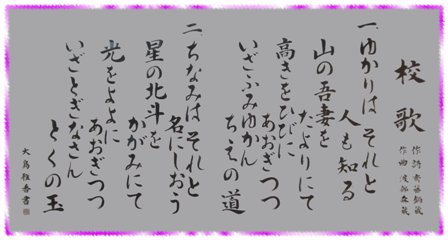 校歌
作詩 斎藤
作曲 渡部
一、ゆかりは それと
人も知る
山の吾妻を
たよりにて
高きをひびに
あおぎつつ
いざふみゆかん
ちえの道
二、ちなみは それと
名にしおう
星の北斗を
かがみにて
光をよよに
あおぎつつ
いざとぎなさん
とくの玉
大鳥雅香書